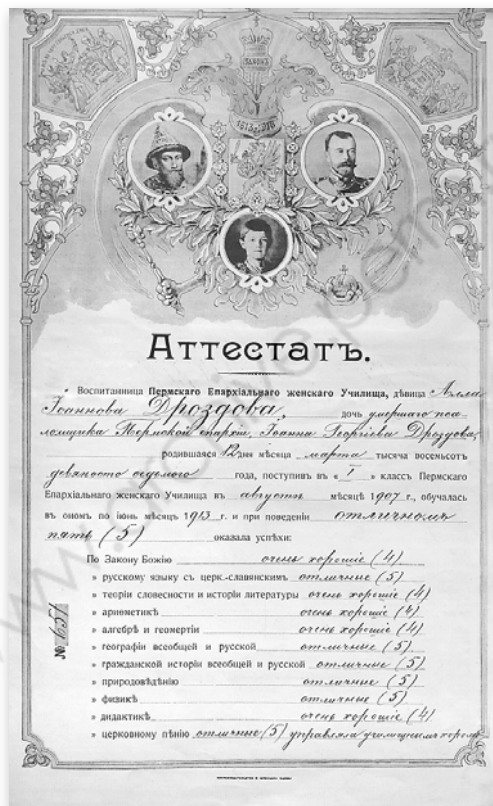 ЗАКОНЪ
1613–1913
Аттестатъ.
Воспитанница Пермскаго Епархіальнаго женскаго Училища, дѣвица
Іоаннова Дроздова, дочь умершаго псаломщика
Пермской епархіи, Іоанна Георгіева Дроздова,
родившаяся 12 дня мѣсяца марта тысяча восемьсотъ
девяносто седьмого года, поступивъ въ « I » классъ Пермскаго
Епархіальнаго женскаго Училища въ августѣ мѣсяцѣ 1907 г., обучалась
въ ономъ по іюнь мѣсяцъ 1913 г. и при поведеніи отличномъ
пять (5) оказала успѣхи:
По Закону Божію очень хорошіе (4)
» русскому языку съ церк.-славянскимъ отличные (5)
» теоріи словесности и исторіи литературы очень хорошіе (4)
» ариѳметикѣ очень хорошіе (4)
» алгебрѣ и геометріи очень хорошіе (4)
» географіи всеобщей и русской отличные (5)
» гражданской исторіи всеобщей и русской отличные (5)
» природовѣдѣнію отличные (5)
» физикѣ отличные (5)
» дидактикѣ очень хорошіе (4)
» церковному пѣнію отличные (5) управляла училищнымъ хоромъ
№